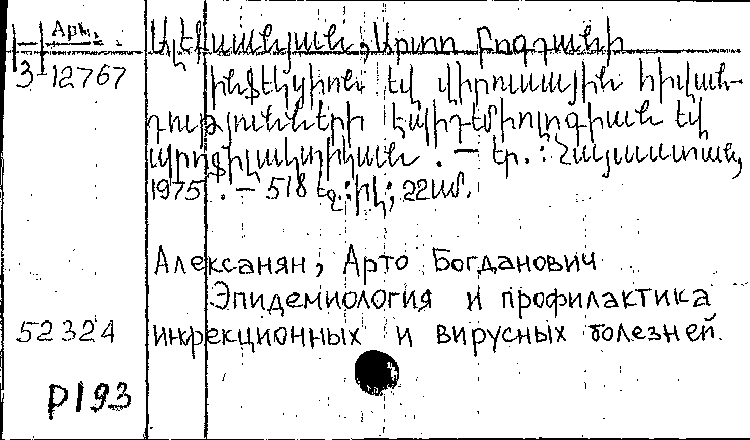 Арм.
Ալեքսանյան, Արտո Բոգդանի
3-12767
Ինֆեկցիոն եվ վիրուսային հիվան-
դությունների էպիդեմիոլոգիան եվ
պրոֆիլակտիկան. — Եր. : Հայաստան,
1975. — 518 էջ.:իկ; 22սմ.
Алексанян, Арто Богданович
Эпидемиология и профилактика
52324
инфекционных и вирусных болезней.
P193